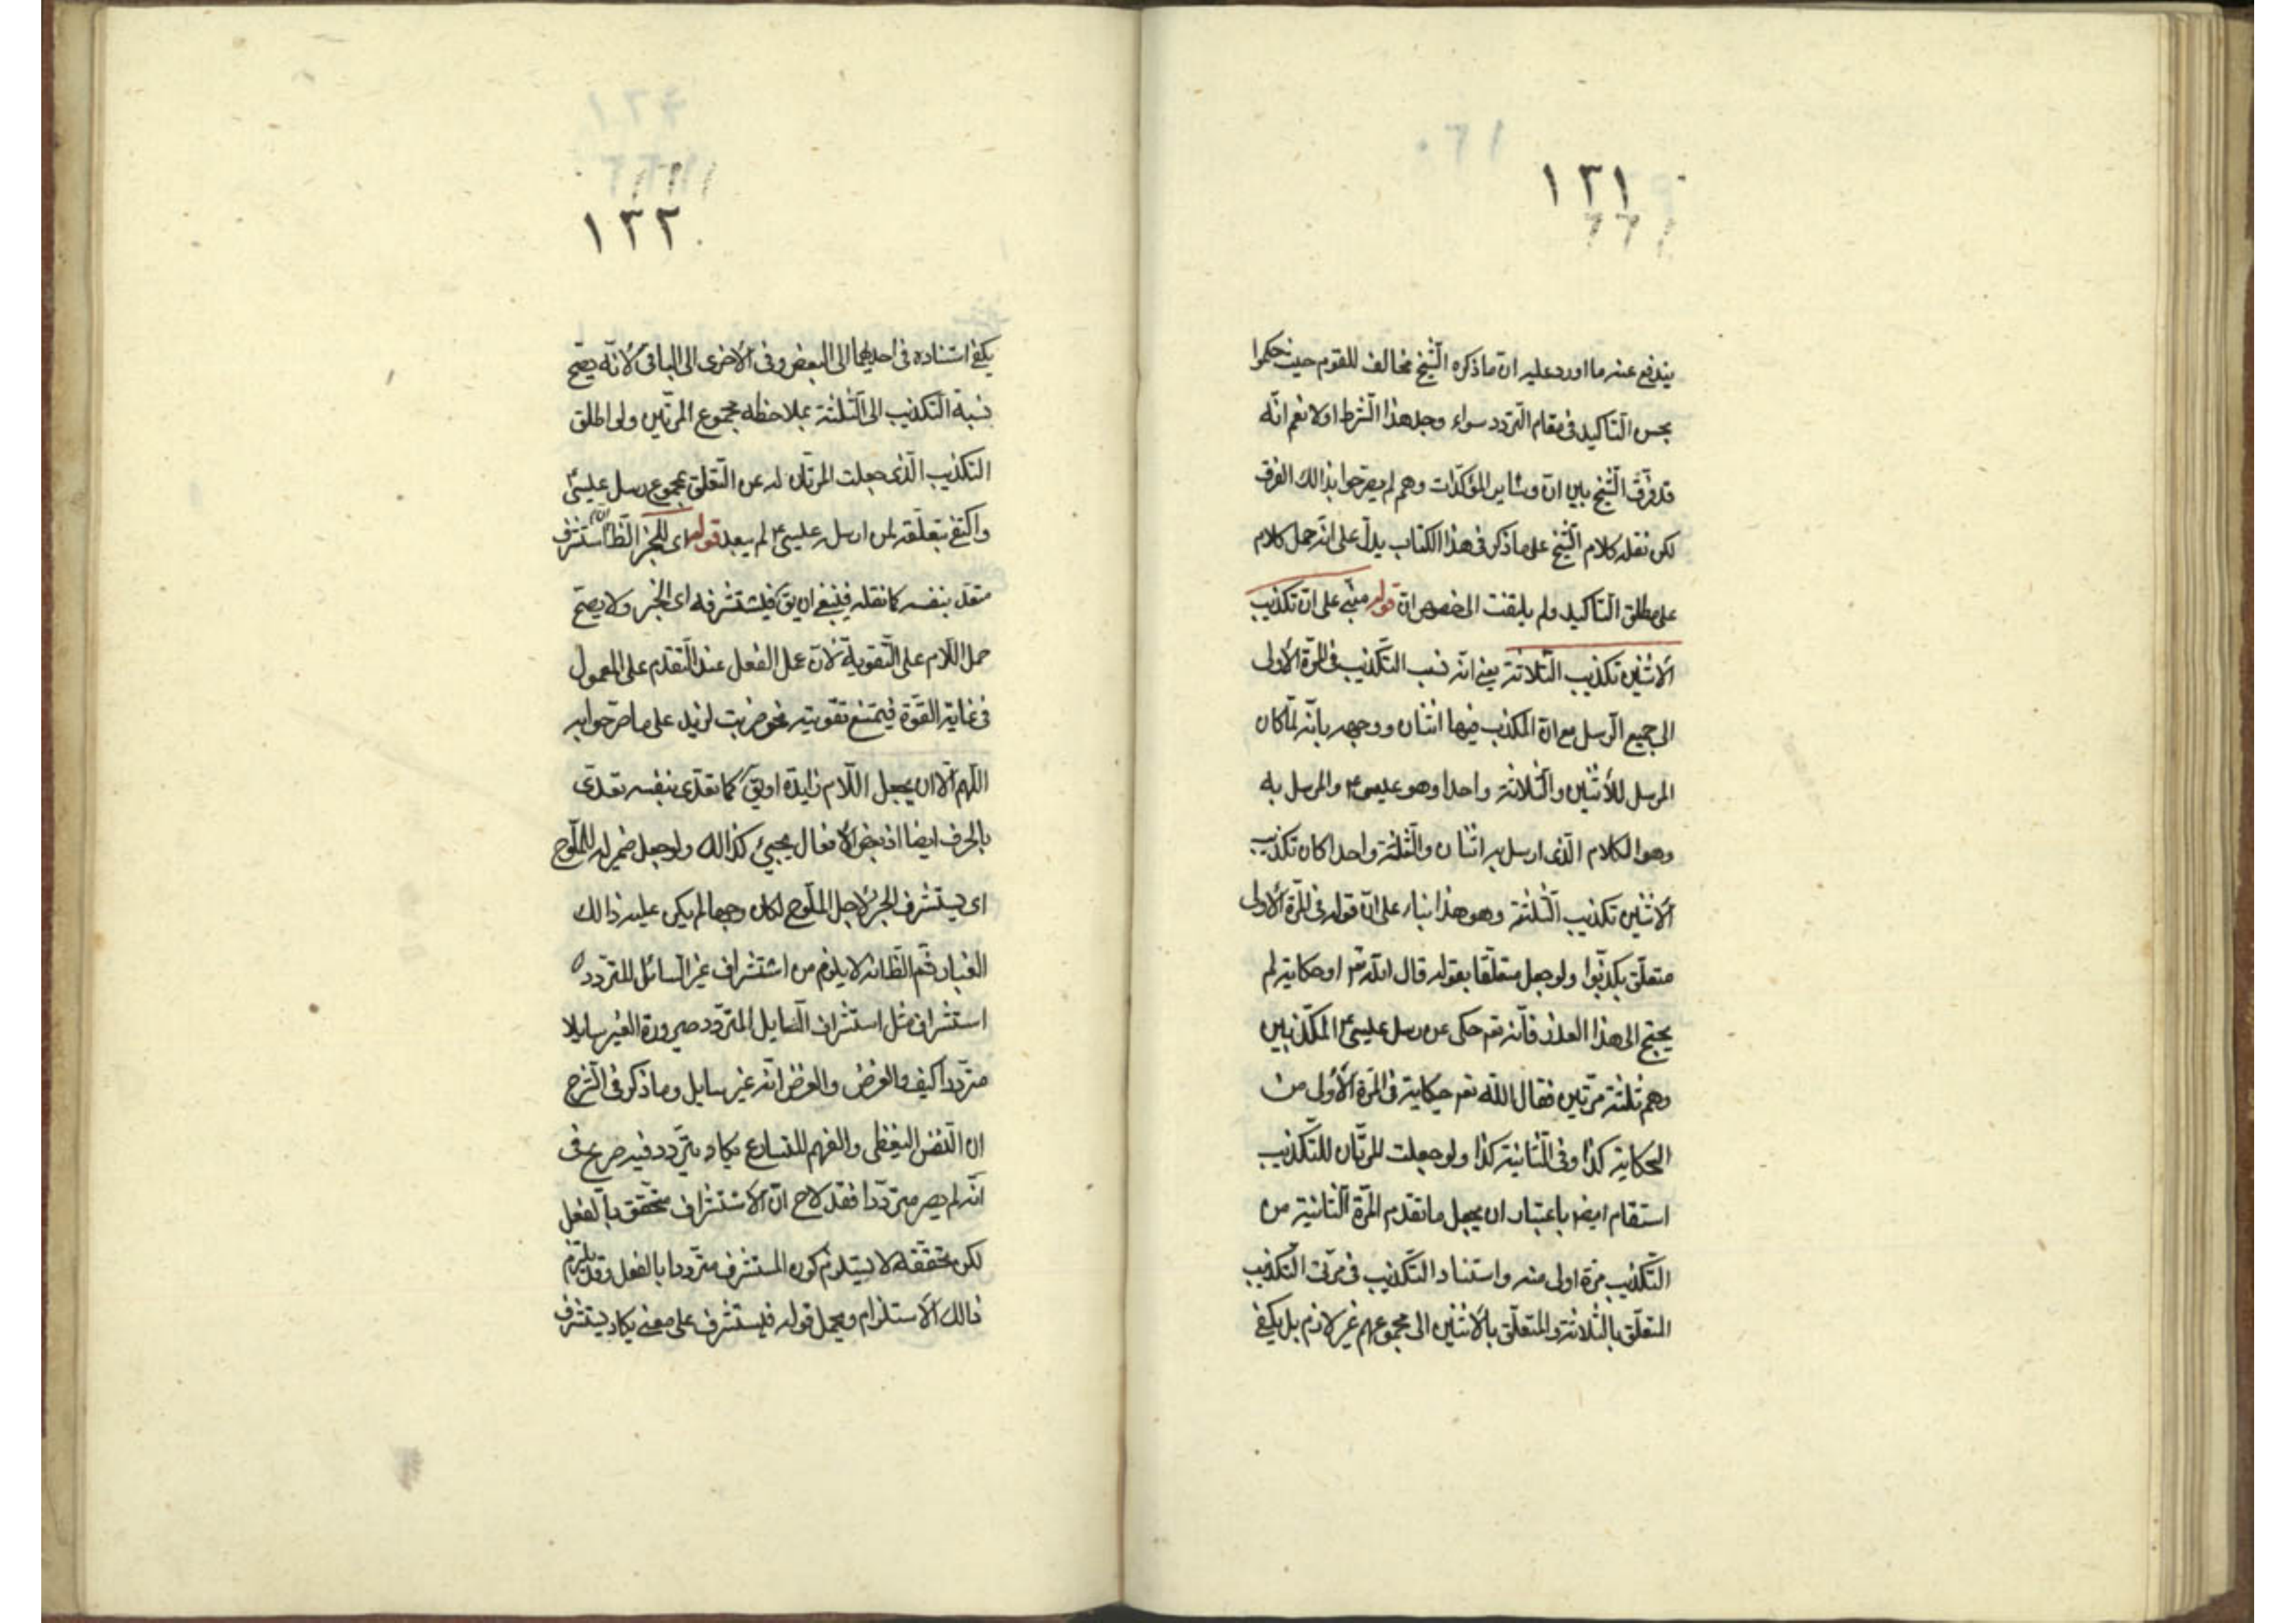 ١٣١
يندفع عنه ما اورد عليه ان ما ذكره الشّيخ مخالف للقوم حيث حكموا
بحسن التّاكيد فى مقام التّردد سواء وجد هذا الشّرط اولا نعم انّه
قد فرّق الشّيخ بين انّ وسٰاير المؤكّدات وهم لم يصرّحوا بذالك الفرق
لكن نقله كلام الشّيخ على ما ذكر فى هذا الكتاب يدلّ على انّه حمل كلام
على مطلق التّاكيد ولم يلتفت الى خصوص انّ قوله مبنى على انّ تكذيب
الأثنين تكذيب الثّلاثة يعنى انّه نسب التّكذيب فى المرّة الأولى
الى جميع الرّسل مع انّ المكذب فيها اثنان ووجهه بانّه لمّا كان
المرسل للأثنين والثّلاثة واحدا وهو عيسى ع والمرسل به
وهو الكلام الّذى ارسل به اثنان والثّلثة واحدا كان تكذيب
الأثنين تكذيب الثّلثة وهو هذا بناء على انّ قوله فى المرّة الأولى
متعلّق بكذّبوا ولو جعل متعلّقا بقوله قال اللّه تعٰ او حكاية لم
يحتج الى هذا العذر فانّه تعٰ حكى عن رسل عيسى ع المكذّبين
وهم ثلثة مرّتين فقال اللّه تعٰ حكاية فى المرّة الأولى من
الحكاية كذا وفى الثّانية كذا ولو جعلت المرّتان للتّكذيب
استقام ايضا باعتبار ان يجعل ما تقدم المرّة الثّانية من
التّكذيب مرّة اولى منه واسناد التّكذيب فى مرّتى التّكذيب
المتعلّق بالثّلاثة والمتعلّق بالأثنين الى مجموعهم غير لازم بل يكفى
١٣٢
يكفى اسناده فى احديهما الى البعض وفى الأخرى الى الباقى لأنّه يصحّ
نسبة التّكذيب الى الثّلثة بملاحظه مجموع المرّتين ولو اطلق
التكذيب الّذى جعلت المرّتان له عن التّعلّق بمجموع رسل عيسى ع
واكتفى بتعلّقه بمن ارسله عيسى ع لم يبعد قوله اى للخبر الظّا انّ استشرف
متعدّ بنفسه كما نقله فينبغى ان يقٰ فيستشرفه اى الخبر ولا يصحّ
حمل اللّام على التّقوية لأنّ عمل الفعل عند التّقدم على المعمول
فى غاية القوّة فيمتنع تقويته نحو ضربت لزيد على ما صرّحوا به
اللّهم الّا ان يجعل اللّام زايدة او يقٰ كما تعدّى بنفسه تعدّى
بالحرف ايضا اذ بعض الأفعال يجيئ كذالك ولو جعل ضمير له للملّوح
اى يستشرف الخبر لأجل الملّوح لكان وجها لم يكن عليه ذالك
الغبار ثم الظّا انّه لا يلزم من استشراف غير السّائل للمتردد
استشراف مثل استشراف السّايل المتردّد صيرورة الغير سايلا
متردّدا كيف والفرض والغرض انّه غير سايل وما ذكر فى الشّرح
ان النّفس اليقظى والفهم المتسارع يكاد يتردد فيه صريح فى
انّه لم يصر متردّدا فقد لاح انّ الأستشراف متحّقق بالفعل
لكن تحقّقه لا يستلزم كون المستشرف متردّدا بالفعل وقد يلتزم
ذالك الأستلزام ويحمل قوله فيستشرف على معنى يكاد يستشرف